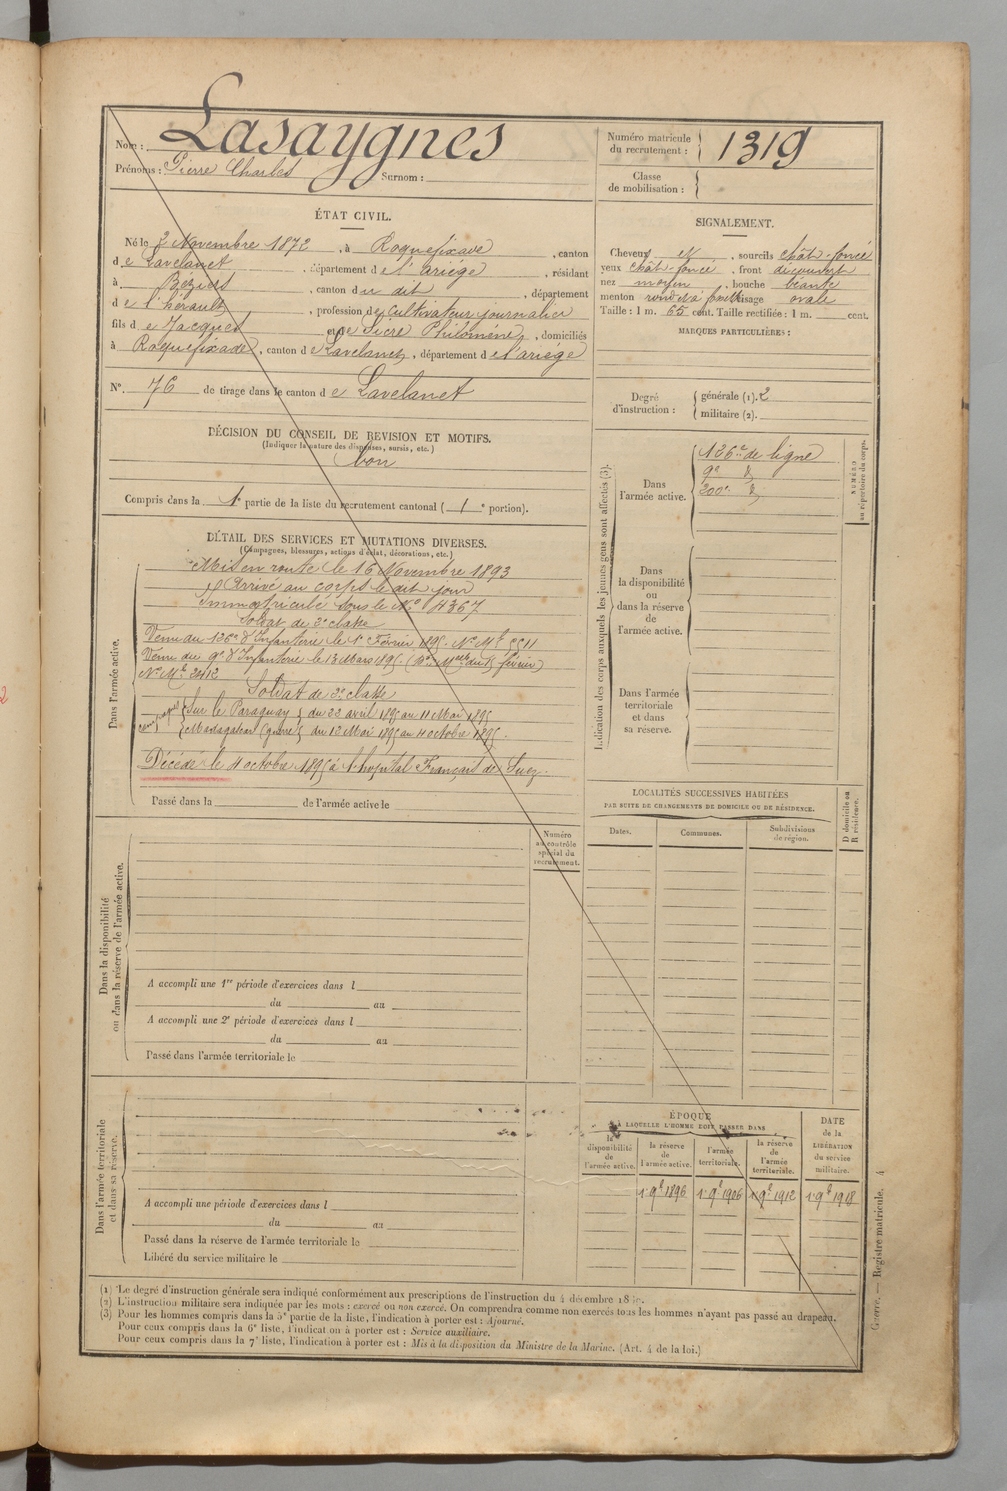 Nom : Lasaygnes
Prénoms : Pierre Charles Surnom :
Numéro matricule
du recrutement : 1319
Classe
de mobilisation :
ÉTAT CIVIL.
Né le 2 Novembre 1872, à Roquefixade, canton
de Lavelanet, département de l'ariège, résidant
à Béziers, canton du dit, département
de l'hérault, profession de cultivateur journalier
fils de Jacques et de Sicre Philomène, domiciliés
à Roquefixade, canton de Lavelanet, département de l'ariège
N°. 76 de tirage dans le canton de Lavelanet
SIGNALEMENT.
Cheveux et, sourcils chât-foncé
yeux chât-foncé, front découvert
nez moyen, bouche béante
menton rond et à visage ovale
Taille : 1 m. 65 cent. Taille rectifiée : 1 m. cent.
MARQUES PARTICULIÈRES :
Degré
d'instruction :
générale (1). 2
militaire (2).
DÉCISION DU CONSEIL DE REVISION ET MOTIFS.
(Indiquer la nature des dispenses, sursis, etc.)
bon
Compris dans la 1e partie de la liste du recrutement cantonal ( 1 e portion).
DÉTAIL DES SERVICES ET MUTATIONS DIVERSES.
(Campagnes, blessures, actions d'éclat, décorations, etc.)
Dans l'armée active.
Mis en route le 16 Novembre 1893
Arrivé au corps le dit jour
Immatriculé sous le N° 4367
Soldat de 2e classe
Venu du 126e d'Infanterie le 1e Février 1895. N° Mle 5511
Venu du 9e d'Infanterie le 13 Mars 1895. (Don Melle du 5 février)
N° Mle 2412
Soldat de 2e classe
Campagnes
Sur le Paraguay du 22 avril 1895 au 11 Mai 1895
Madagascar (guerre) du 12 Mai 1895 au 4 octobre 1895.
Décédé le 4 octobre 1895 à l'hopital Français de Suez.
Passé dans la de l'armée active le
Indication des corps auxquels les jeunes gens sont affectés (3).
Dans
l'armée active.
126e de ligne
9e d°
200e d°
NUMÉRO
au répertoire du corps.
Dans
la disponibilité
ou
dans la réserve
de
l'armée active.
Dans l'armée
territoriale
et dans
sa réserve.
LOCALITÉS SUCCESSIVES HABITÉES
PAR SUITE DE CHANGEMENTS DE DOMICILE OU DE RÉSIDENCE.
Dates. Communes. Subdivisions
de région.
D domicile ou
R résidence.
Numéro
au contrôle
spécial du
recrutement.
Dans la disponibilité
ou dans la réserve de l'armée active.
A accompli une 1re période d'exercices dans l
du au
A accompli une 2e période d'exercices dans l
du au
Passé dans l'armée territoriale le
Dans l'armée territoriale
et dans sa réserve.
A accompli une période d'exercices dans l
du au
Passé dans la réserve de l'armée territoriale le
Libéré du service militaire le
ÉPOQUE
À LAQUELLE L'HOMME DOIT PASSER DANS
la
disponibilité
de
l'armée active.
la réserve
de
l'armée active.
l'armée
territoriale.
la réserve
de
l'armée
territoriale.
DATE
de la
LIBÉRATION
du service
militaire.
1er 9bre 1896 1er 9bre 1906 1er 9bre 1912 1er 9bre 1918
(1) Le degré d'instruction générale sera indiqué conformément aux prescriptions de l'instruction du 4 décembre
(2) L'instruction militaire sera indiquée par les mots : exercé ou non exercé. On comprendra comme non exercés tous les hommes n'ayant pas passé au drapeau.
(3) Pour les hommes compris dans la 5e partie de la liste, l'indication à porter est : Ajourné.
Pour ceux compris dans la 6e liste, l'indication à porter est : Service auxiliaire.
Pour ceux compris dans la 7e liste, l'indication à porter est : Mis à la disposition du Ministre de la Marine. (Art. 4 de la loi.)
Guerre. — Registre matricule. 4
2